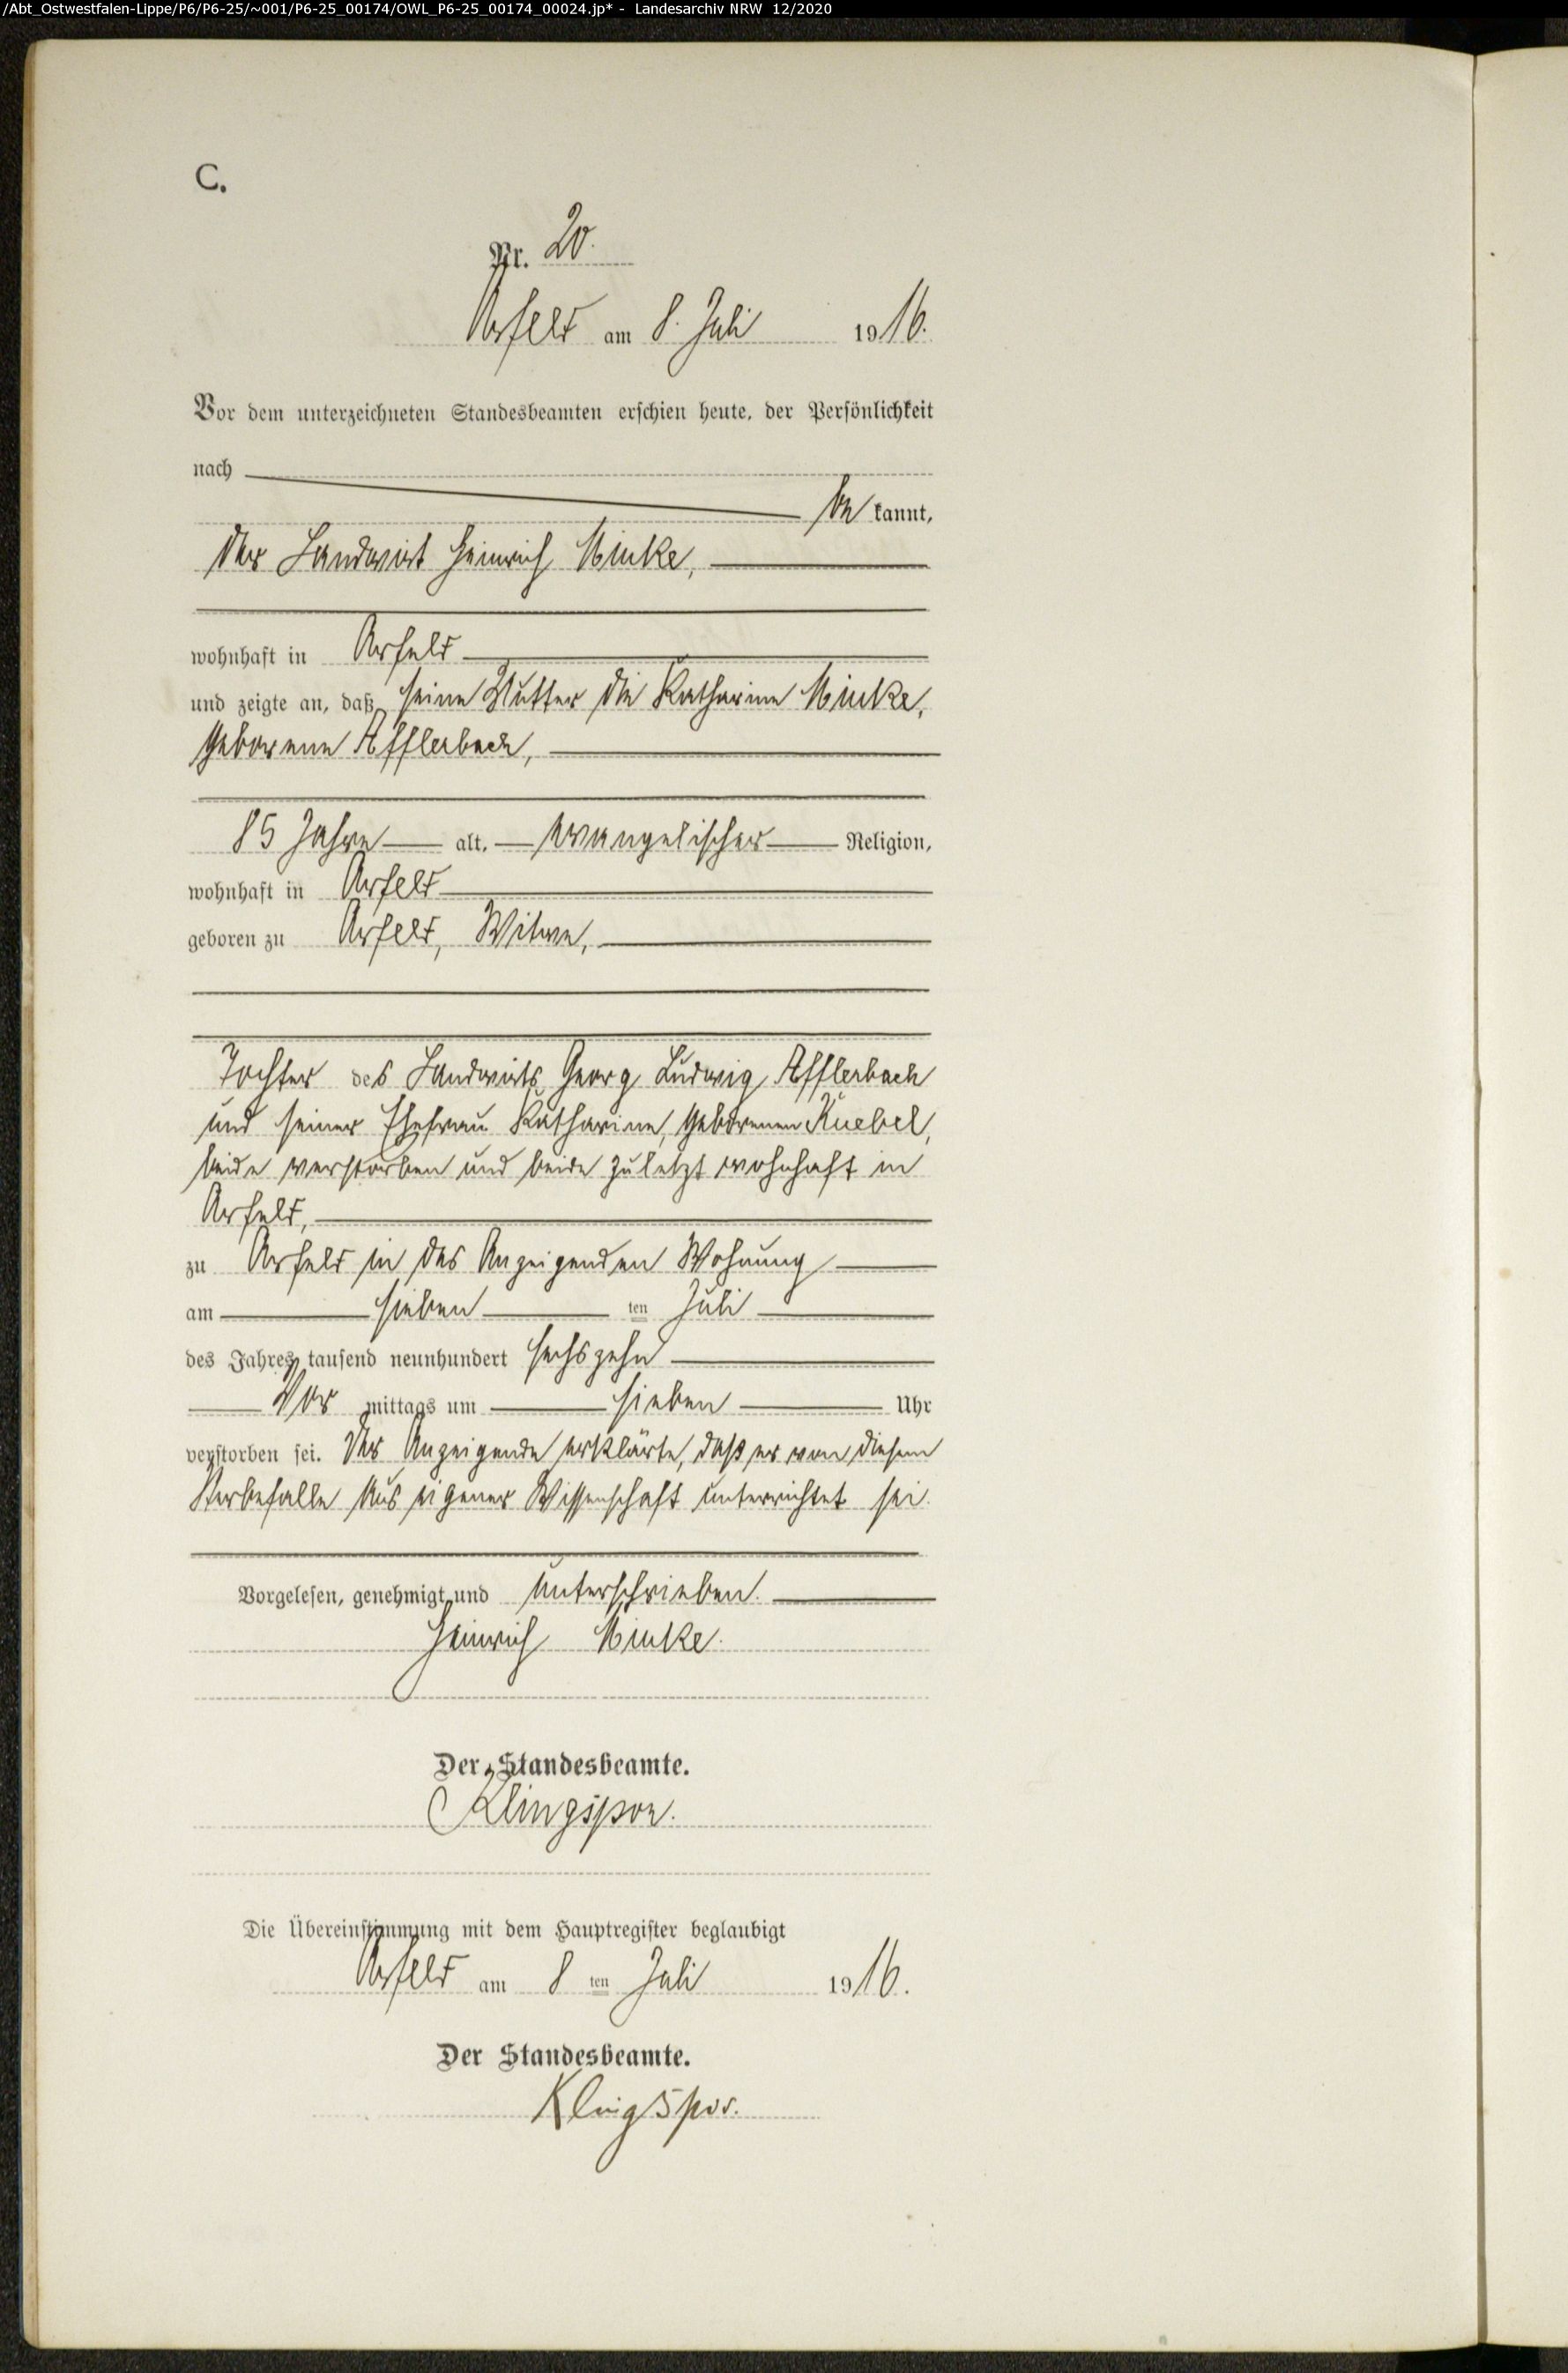 /Abt_Ostwestfalen-Lippe/P6/P6-25/~001/P6-25_00174/OWL_P6-25_00174_00024.jp* - Landesarchiv NRW 12/2020
C.
Nr. 20.
Arfeld am 8. Juli 1916.
Vor dem unterzeichneten Standesbeamten erschien heute, der Persönlichkeit
nach
be kannt,
der Landwirt Heinrich Minke,
wohnhaft in Arfeld
und zeigte an, daß seine Mutter die Katharine Minke,
geborene Afflerbach,
85 Jahre alt, evangelischer Religion,
wohnhaft in Arfeld
geboren zu Arfeld, Witwe,
Tochter des Landwirts Georg Ludwig Afflerbach
und seiner Ehefrau Katharine, geborenen Kuebel,
beide verstorben und beide zuletzt wohnhaft in
Arfeld,
zu Arfeld in des Anzeigenden Wohnung
am sieben ten Juli
des Jahres tausend neunhundert sechszehn
Vor mittags um sieben Uhr
verstorben sei. Der Anzeigende erklärte, daß er von diesem
Sterbefalle aus eigener Wissenschaft unterrichtet sei.
Vorgelesen, genehmigt und unterschrieben.
Heinrich Minke.
Der Standesbeamte.
Klingspor.
Die Übereinstimmung mit dem Hauptregister beglaubigt
Arfeld am 8 ten Juli 1916.
Der Standesbeamte.
Klingspor.